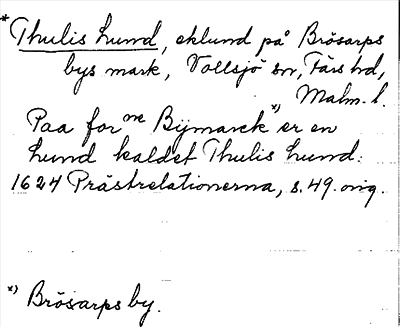 * Thulis Lund, eklund på Brösarps
bys mark, Vollsjö sn, Färs hd,
Malm. l.
Paa for^ne Bymarck *) er en
Lund kaldet Thulis Lund.
1624 Prästrelationerna, s. 49. orig.
*) Brösarps by.